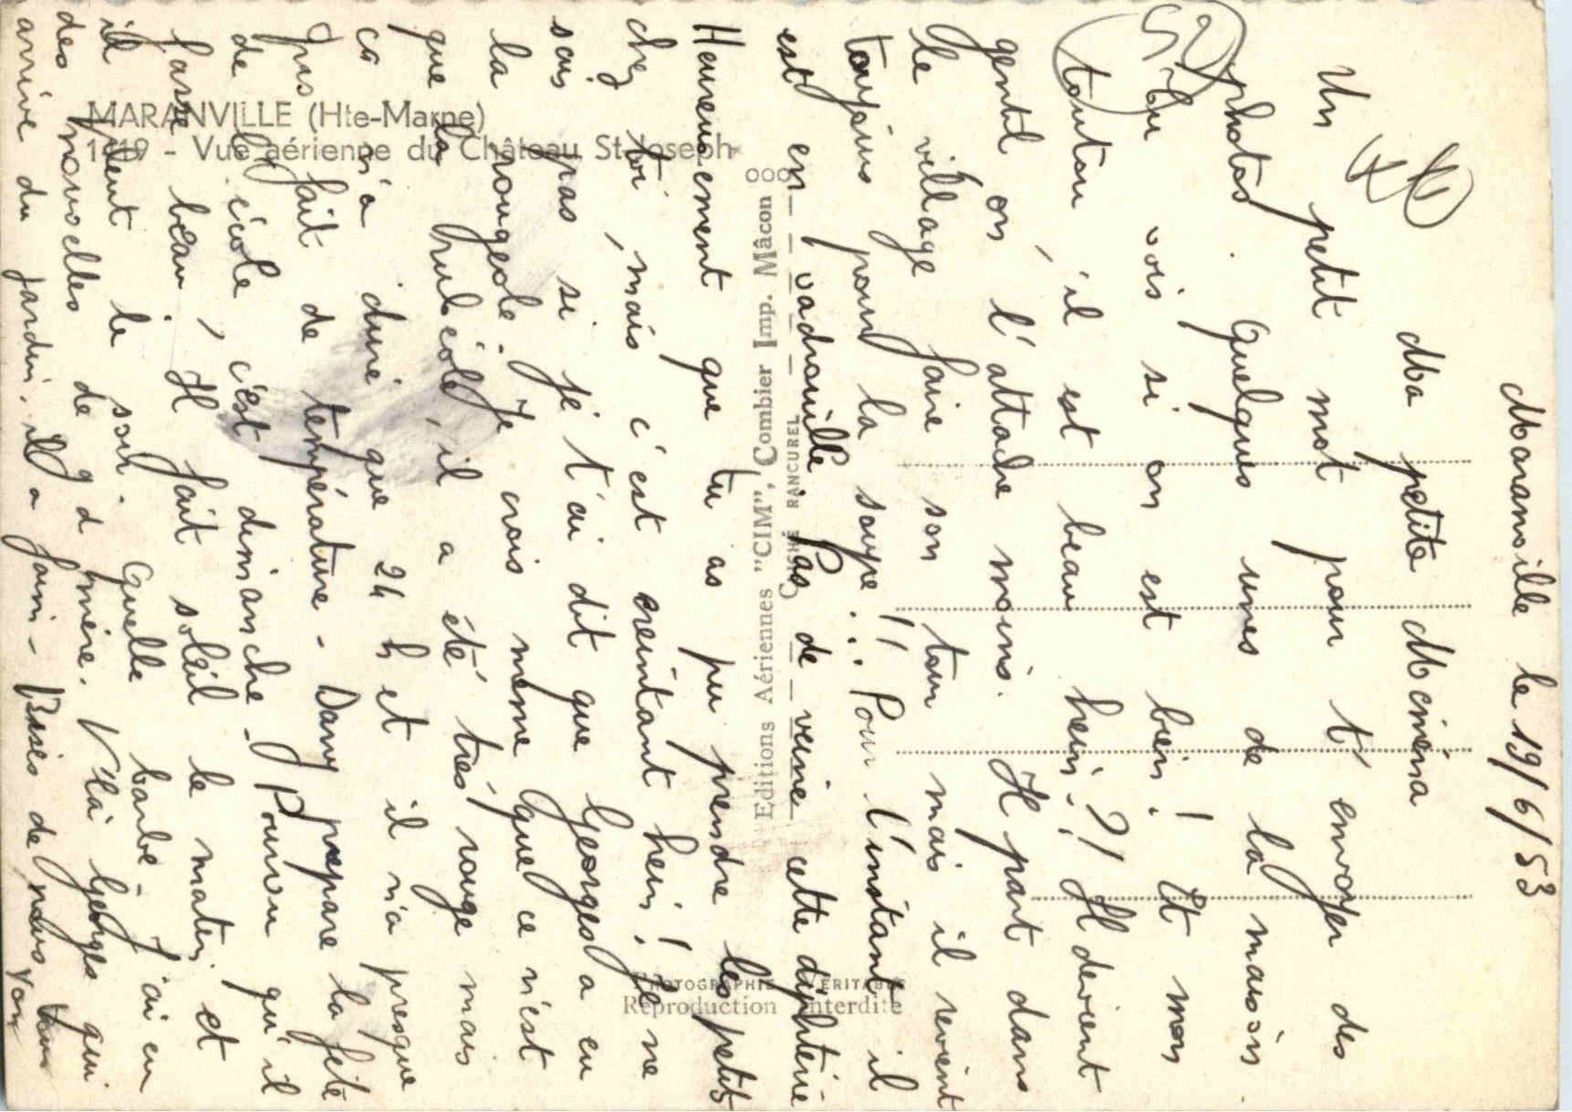 Maranville le 19/6/53
Ma petite Mémésa
Un petit mot pour t'envoyer des
photos. Quelques unes de la maison
tu vois si on est bien! Et mon
toutou, il est beau hein?! Il devient
gentil on l'attache moins. Il part dans
le village faire son tour mais il revient
toujours pour la soupe..!! Pour l'instant il
est en vadrouille. Pas de veine cette diphtérie
Heureusement que tu as pu prendre les petits
chez toi, mais c'est éreintant hein! Je ne
sais pas si je t'ai dit que Georges a eu
la rougeole. Je crois même que ce n'est
que la rubéole, il a été très rouge mais
ça n'a duré que 24 h et il n'a presque
pas fait de température - Dany prépare la fête
de l'école, c'est dimanche. Pourvu qu'il
fasse beau, Il fait soleil le matin et
il pleut le soir. Quelle barbe - J'ai eu
des nouvelles de gd mère. V'là Georges qui
arrive du jardin, il a faim - Bises de nous tous
Yon
MARANVILLE (Hte-Marne)
1119 - Vue aérienne du Château St-Joseph
Editions Aériennes "CIM", Combier Imp. Mâcon
CLICHÉ RANCUREL
PHOTOGRAPHIE VÉRITABLE
Reproduction interdite